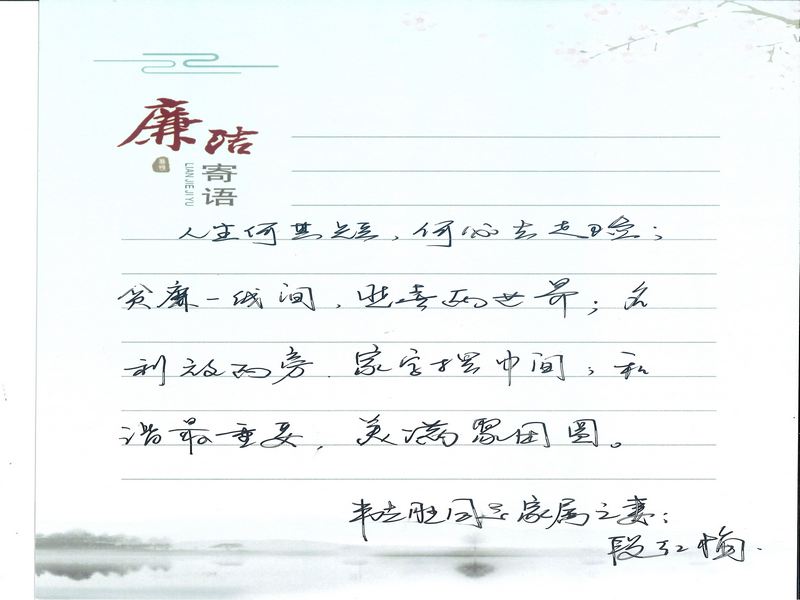 廉洁
寄语
LIANJIEJIYU
人生何其短，何必去走险；
贪廉一线间，悲喜两世界；名
利放两旁，家字摆中间；和
谐最重要，美满聚团圆。
胜同志家属之妻：
段红梅.